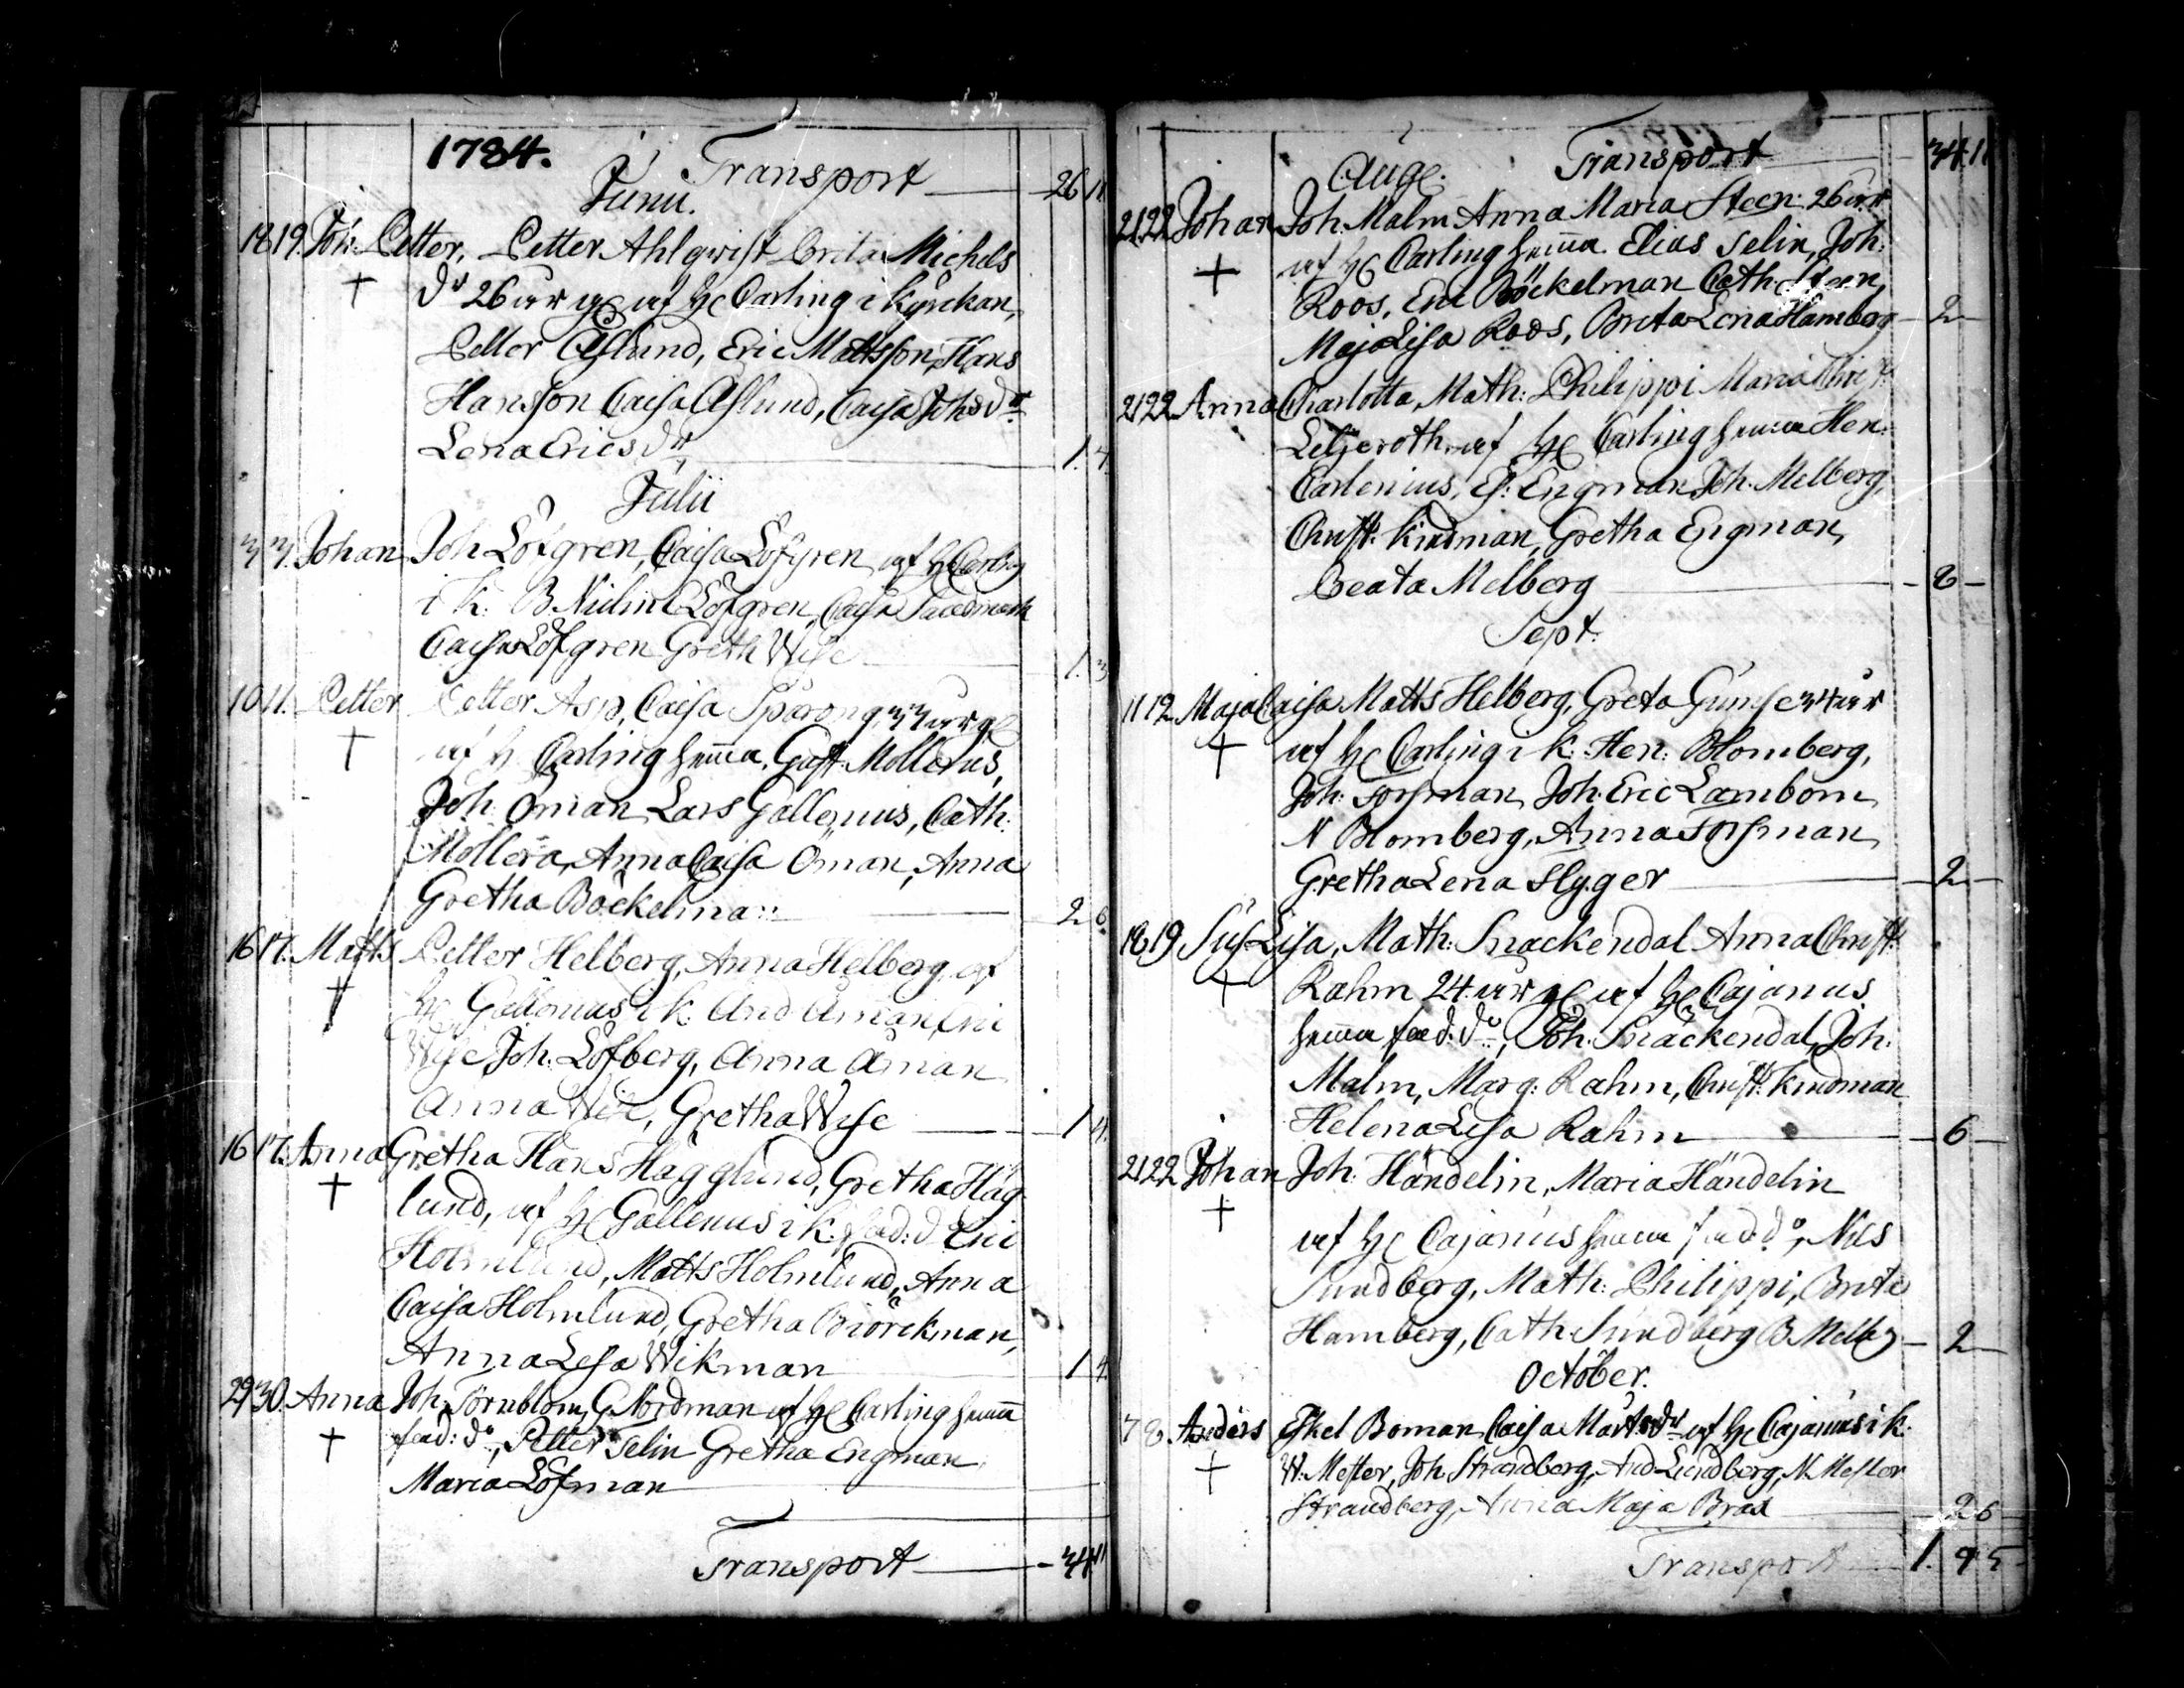 1784.
Transport 26 11
Junii.
18 19. Joh: Petter, Petter Ahlqvist Brita Michels
dr 26 år g. af H. Carling i kyrckan,
Petter Åslund, Eric Mattsson, Hans
Hansson Caisa Åslund, Caisa Johsdr
Lena Ericsdr 1. 4.
Julii
3 3. Johan Joh Löfgren, Caisa Löfgren af H. Carling
i k: B Nielin Löfgren, Caisa Sandmark
Caisa Löfgren Greth Wise 1. 3
10 11. Petter Petter Asp, Caisa Sparong 33 år g.
af H. Carling hemma, Gust. Mollerus,
Joh: Öman Lars Gallenius, Cath:
Mollera, Anna Caisa Öman, Anna
Gretha Böckelman 2 6.
16 17. Matts Petter Helberg, Anna Helberg af
H. Gallenius i k: And Åman, Eric
Wise Joh: Löfberg, Anna Åman
Anna Wise, Gretha Wise 1 4.
16 17. Anna Gretha Hans Hägglund, Gretha Häg
lund, af H. Gallenius i k: fad: d Eric
Holmlund, Matts Holmlund, Anna
Caisa Holmlund, Gretha Biörckman,
Anna Lisa Wikman 1 4.
29 30. Anna Joh: Törnblom, G. Nordman af H. Carling hemma
fad: do, Petter Selin Gretha Engman
Maria Löfman
Transport 34 11
Aug. Transport 34. 11
21 22 Johan Joh: Malm Anna Maria Steen 26 år
af H. Carling hemma. Elias Selin, Joh:
Roos, Eric Böckelman Cath: Steen,
Maja Lisa Roos, Brita Lena Hamberg 2
21 22 Anna Charlotta, Math: Philippi Maria Christ:
Leljeroth af H. Carling hemma Hen:
Carlenius, Es: Engman Joh: Melberg,
Christ: Kindman, Gretha Engman,
Beata Melberg 8
Sept.
11 12 Maja Caisa Matts Helberg, Greta Gunse 34 år
af H. Carling i k: Hen: Blomberg,
Joh: Forsman, Joh: Eric Lambom,
N Blomberg, Anna Forsman
Gretha Lena Slyger 2
18 19 Sus: Lisa, Math: Snackendal Anna Christ:
Rahm 24 år g. af H. Cajanus
hemma fad: do, Joh: Snäckendal, Joh:
Malm, Marg: Rahm, Christ: Kindman
Helena Lisa Rahm 6
21 22 Johan Joh: Händelin, Maria Händelin
af H. Cajanus hemma fad: do, Nils
Sundberg, Math: Philippi, Brita
Hamberg, Cath Sundberg B Melberg 2
October.
7 8 Anders Eskel Boman, Caisa Martsdr af H. Cajanus i k:
W. Mester, Joh: Strandberg, And Lundberg, N. Mester
Strandberg, Anna Maja Brax 2 6
Transport 1. 9 5